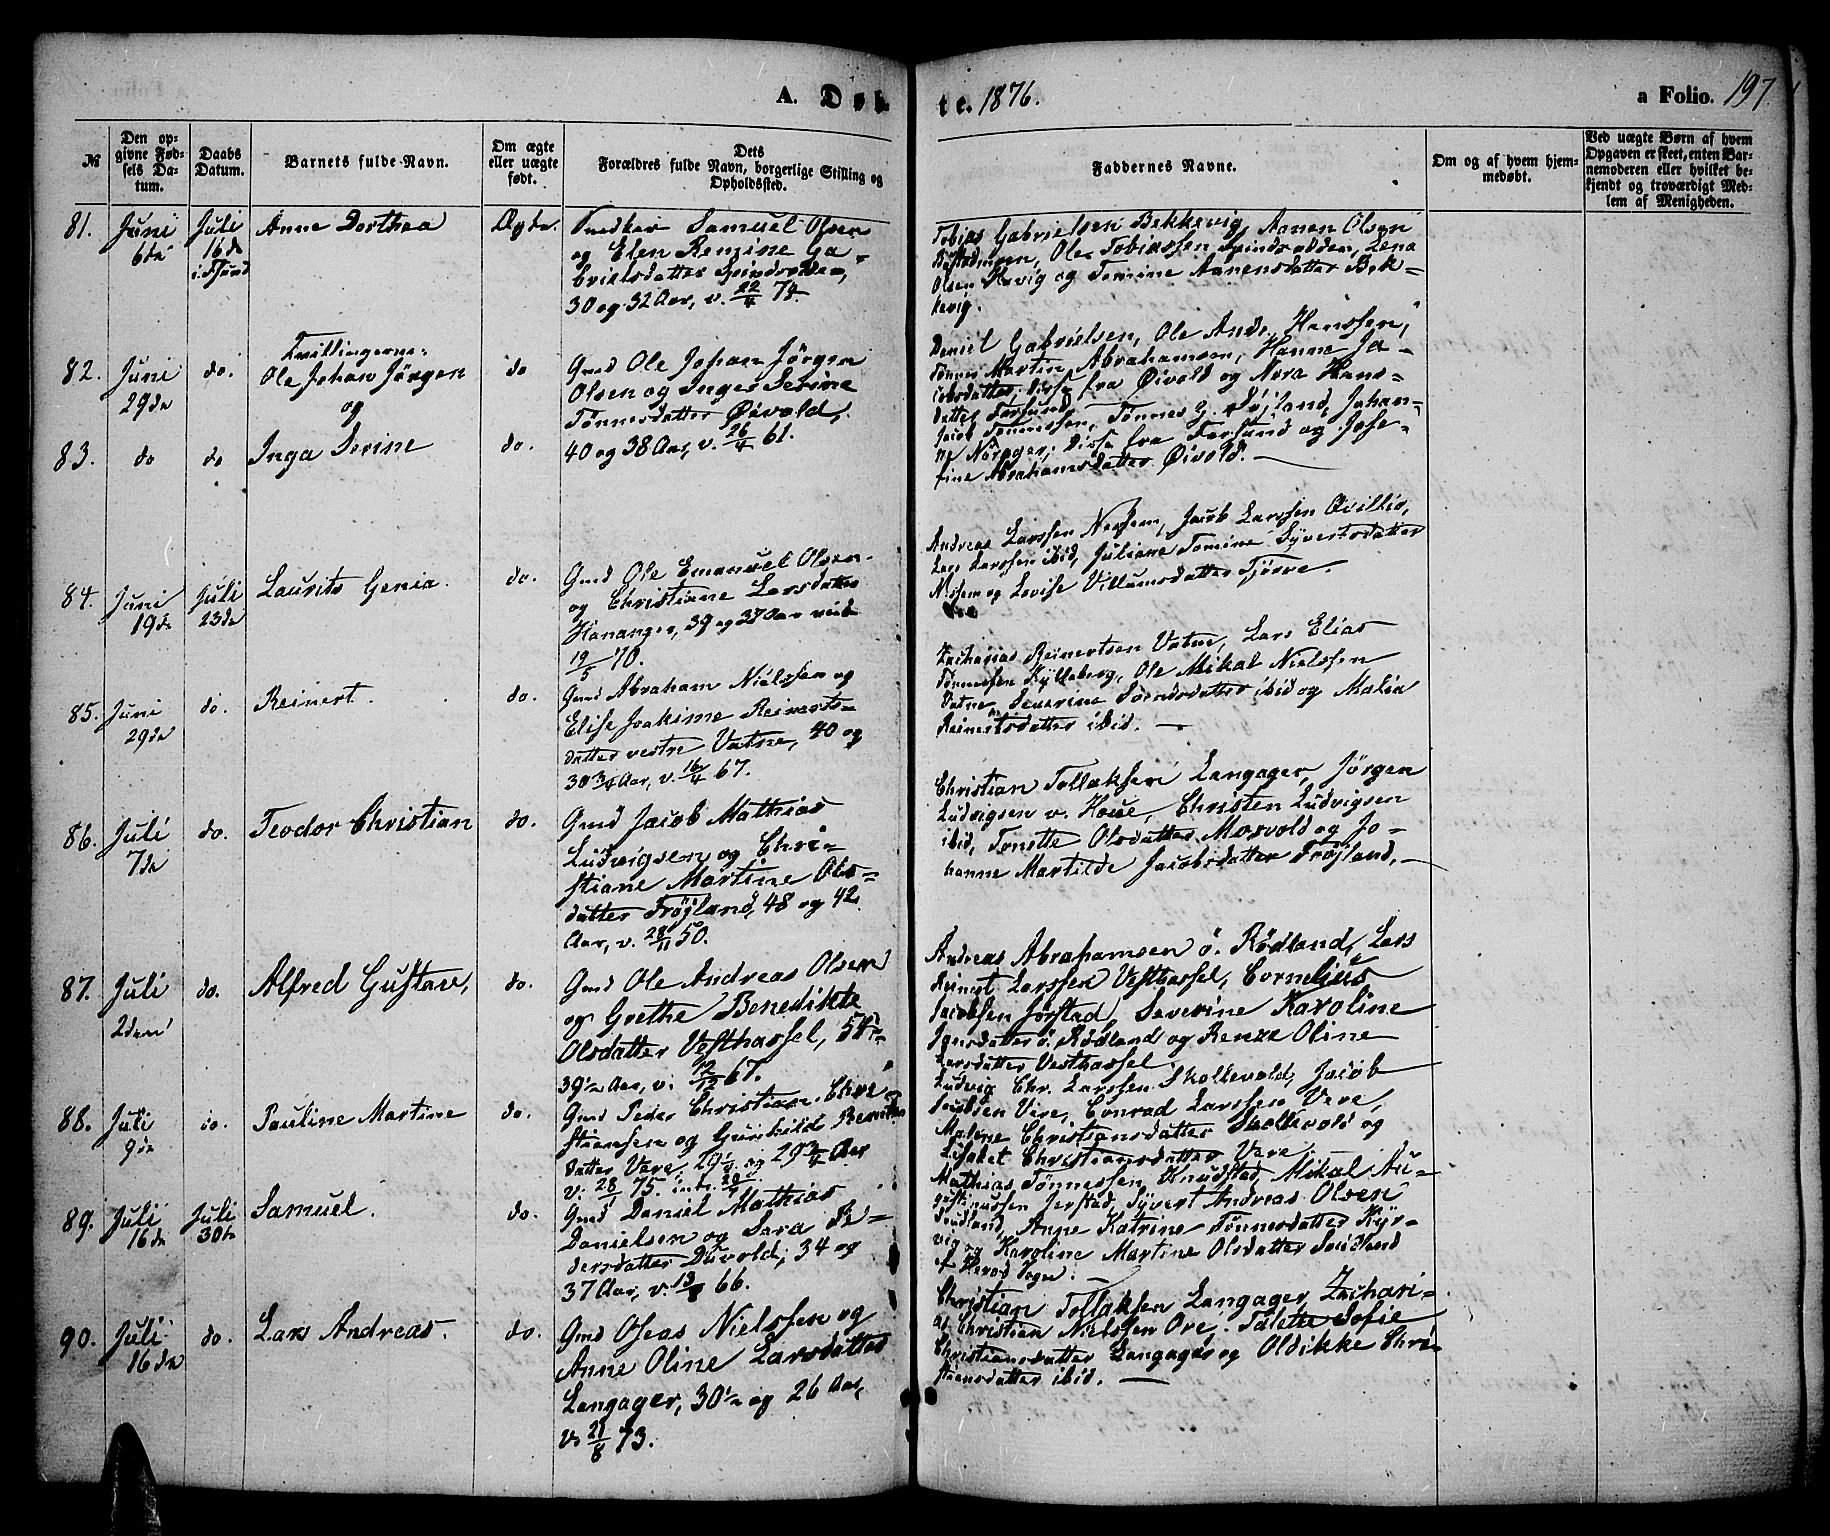 A. Døb-
te. 1876.
a Folio. 197.
№
Den op-
givne Fød-
sels Da-
tum.
Daabs
Datum.
Barnets fulde Navn.
Om ægte
eller uægte
født.
Dets
Forældres fulde Navn, borgerlige Stilling og
Opholdssted.
Faddernes Navne.
Om og af hvem hjem-
medøbt.
Ved uægte Børn af hvem
Opgaven er skeet, enten Bar-
nemoderen eller hvilket be-
kjendt og troværdigt Med-
lem af Menigheden.
81. Juni
6te
Juli
16de
Anne Dorthea
Ægte.
Samuel Olsen
og ElenRemine Ga-
brielsdatter Spindsodden,
30 og 32 Aar, v. 22/4 74.
Tobias Gabrielsen Bekkevig, Aanen Olsen
Ole Tobiassen Spindsodden, Lena
Olsen Hervig og Tomine Aanensdatter Bek-
kevig.
82. Juni
29de
do.
Tvillingerne:
Ole Johan Jörgen
og
do
Gmd Ole Johan Jörgen
Olsen og Inger Serine
Tönnesdatter Öivold,
40 og 38 Aar, v. 26/4 61.
Daniel Gabrielsen, Ole Andr. Hanssen,
Tönnes Martin Abrahamsen, Hanne Ja-
cobsdatter, disse fra Öivold og Nora Hans-
datter Farsund.
83. do do
Inga Serine
do.
Jacob Tönnessen, Tönnes G. Röjland, Johan-
ne Noreger, disse fra Farsund og Jose-
fine Abrahamsdatter Öivold. —
84. Juni
19de
Juli
23de
Laurits Genia.
do.
Gmd Ole Emanuel Olsen
og Christiane Larsdatter
Hananger, 39 og 37 Aar viede
19/5 70.
Andreas Larssen Nessem, Jacob Larssen Qvillio,
Lars Larssen ibid, Juliane Tomine Syvertsdatter
Nessem og Lovise Villumsdatter Tjörve
85. Juni
29de
do.
Reinert.
do.
Gmd Abraham Nielssen og
Elise Joakime Reinerts-
datter vestre Vatne, 40 og
30 3/4 Aar, v. 16/4 67.
Zacharias Reinertsen Vatne, Lars Elias
Tönnessen Kylleberg, Ole Mikal Nielssen
Vatne, Severine Sörensdatter ibid og Malia
Reinertsdatter ibid. —
86. Juli
7de
do.
Teodor Christian
do.
Gmd Jacob Mathias
Ludvigsen og Chri-
stiane Martine Ols-
datter Fröjland, 48 og 42
Aar, v. 28/11 50.
Christian Tollaksen Langager, Jörgen
Ludvigsen v. Houe, Christen Ludvigsen
ibid, Tonette Olsdatter Mosvold og Jo-
hanne Martilde Jacobsdatter Fröjland. —
87. Juli
2den
do.
Alfred Gustav,
do.
Gmd Ole Andreas Olsen
og Grethe Benedikte
Olsdatter Vesthassel,
39 1/2 Aar, v. 12/12 67.
Andreas Abrahamsen ö. Rödland, Lars
Reinert Larssen Vesthassel, Cornelius
Jacobsen Jörstad, Severine Karoline
Jonsdatter ö. Rödland og Renze Oline
Larsdatter Vesthassel
88. Juli
9de
do.
Pauline Martine
do.
Gmd Peder Christian Chri-
stiansen og Gunhild
datter Vere, 29 1/4 og 29 3/4 Aar
v. 28/1 75.
Ludvig Chr. Larssen Skollevold, Jacob
Jacobsen Vere, Conrad Larssen Vere,
Malene Christiansdatter Skollevold og
Lisabet Christiansdatter Vere.
89. Juli
16de
Juli
30te
Samuel.
do.
Gmd Daniel Mathias
Danielsen og Sara Pe-
dersdatter Duvold, 34 og
37 Aar, v. 13/8 66.
Mathias Tönnessen Knudstad, Mikal Au-
gustinussen Jerstad, Syvert Andreas Olsen
Sudland, Anne Katrine Tönnesdatter Kyr-
vig og Karoline Martine Olsdatter Sudland
af Herod Sogn.
90. Juli
16de
do.
Lars Andreas.
do.
Gmd Oseas Nielssen og
Anne Oline Larsdatter
Langager, 30 1/2 og 26 Aar,
v. 21/8 73.
Christian Tollaksen Langager, Zachari-
as Christian Nielssen Ore, Talette Sofie
Christiansdatter Langager og Oldikke Chri-
stiansdatter ibid. —